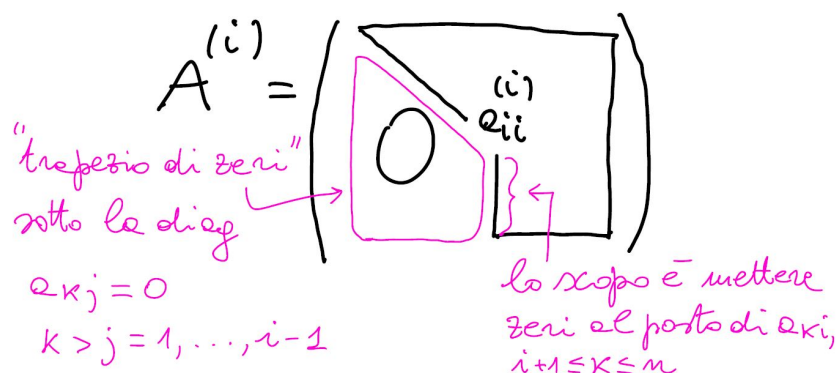 A^(i) =
a_ii^(i)
O
"trapezio di zeri"
sotto la diag
a_kj = 0
k > j = 1, ..., i-1
lo scopo è mettere
zeri al posto di a_ki,
i+1 ≤ k ≤ n